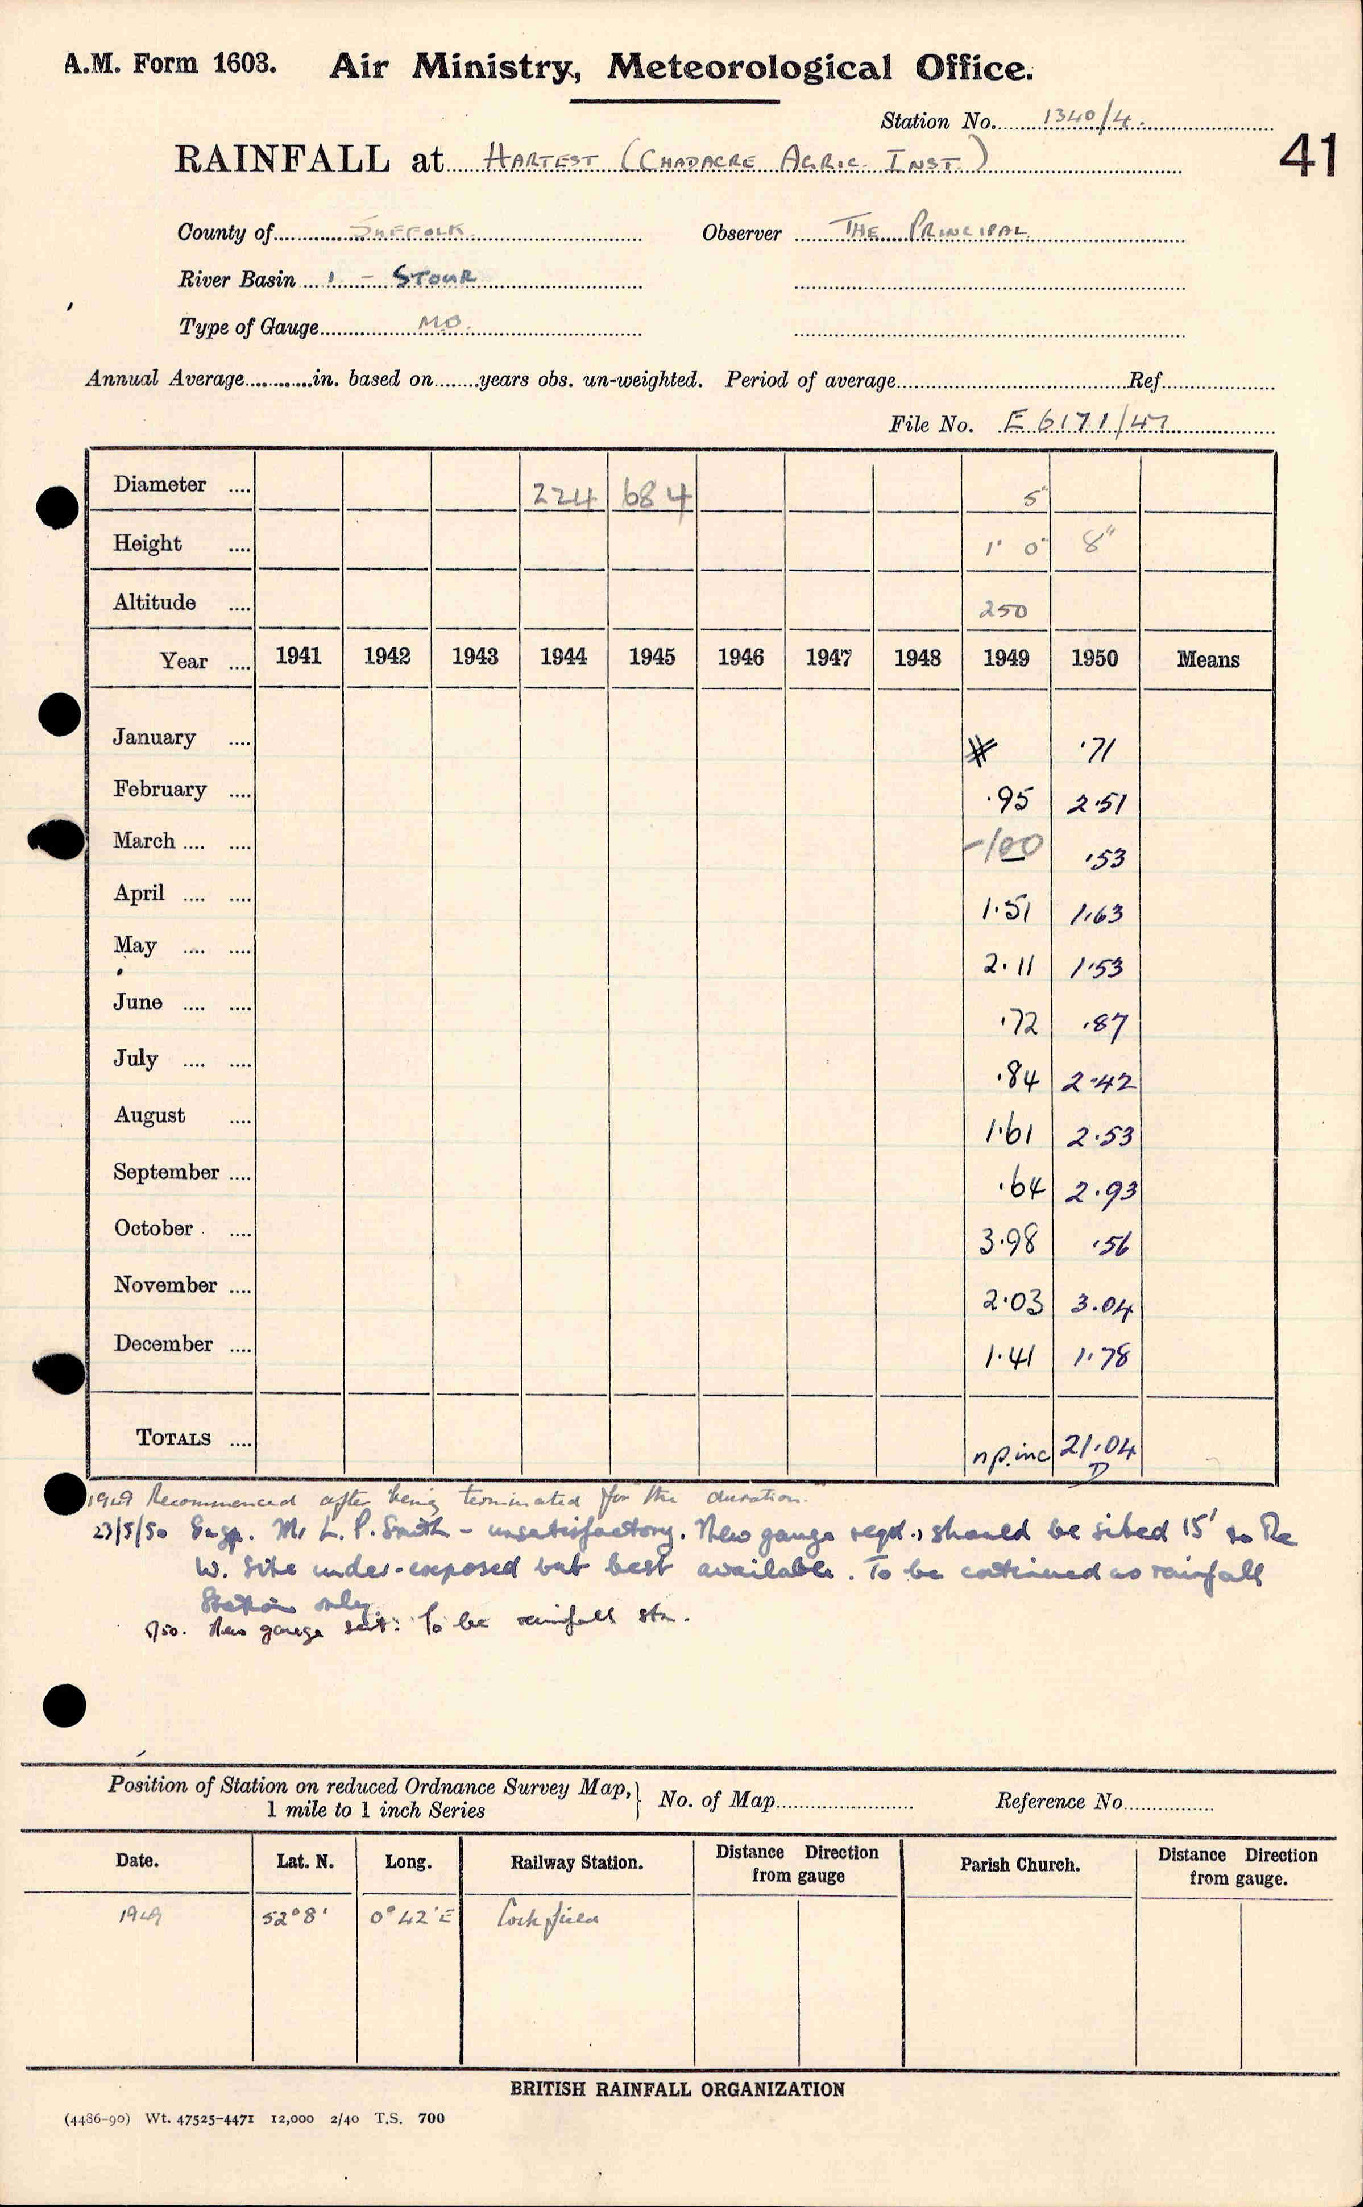 A.M. Form 1603. Air Ministry, Meteorological Office.
Station No. 1340/4.
41
RAINFALL at HARTEST (CHADACRE AGRIC. INST.)
County of SUFFOLK. Observer THE PRINCIPAL
River Basin 1 - STOUR
Type of Gauge M.O.
Annual Average in. based on years obs. un-weighted. Period of average Ref
File No. E 6171/47
Diameter .... 224 684 5"
Height .... 1' 0" 8"
Altitude .... 250
Year .... 1941 1942 1943 1944 1945 1946 1947 1948 1949 1950 Means
January .... # ·71
February .... ·95 2·51
March .... .... -100 ·53
April .... .... 1·51 1·63
May .... .... 2·11 1·53
June .... .... ·72 ·87
July .... .... ·84 2·42
August .... 1·61 2·53
September .... ·64 2·93
October . .... 3·98 ·56
November .... 2·03 3·04
December .... 1·41 1·78
TOTALS .... np.inc 21·04
D
1949 Recommenced after being terminated for the duration.
23/5/50 Insp. Mr L. P. Smith - unsatisfactory. New gauge reqd., should be sited 15' to the
W. Site under-exposed but best available. To be continued as rainfall
Station only.
New gauge sent: To be rainfall stn.
Position of Station on reduced Ordnance Survey Map,
1 mile to 1 inch Series } No. of Map Reference No.
Date. Lat. N. Long. Railway Station. Distance Direction from gauge Parish Church. Distance Direction from gauge.
1949 52°8' 0°42'E Cockfield
BRITISH RAINFALL ORGANIZATION
(4486-90) Wt. 47525-4471 12,000 2/40 T.S. 700